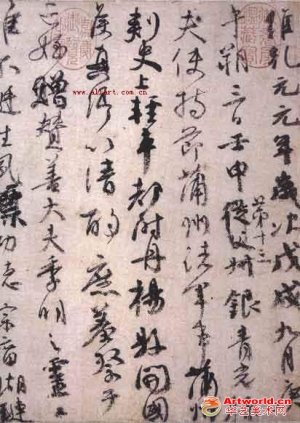 維乾元元年歲次戊戌九月庚
午朔三日壬申第十三從父叔銀青光
夫使持節蒲州諸軍事蒲州
刺史上輕車都尉丹楊縣開國
侯真卿以清酌庶羞祭于
亡姪贈贊善大夫季明之靈
惟尔挺生夙標幼德宗廟瑚璉
Artworld.cn